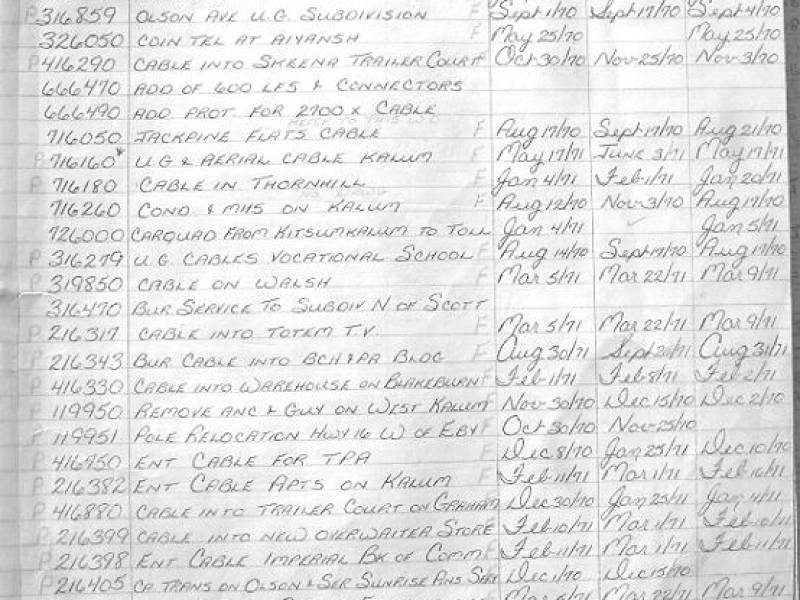 P 316859 OLSON AVE U.G. SUBDIVISION F Sept 1/70 Sept 17/70 Sept 4/70
326050 COIN TEL AT AIYANSH F May 25/70 May 25/70
P 416290 CABLE INTO SKEENA TRAILER COURT F Oct 30/70 Nov 25/70 Nov 3/70
666470 ADD OF 600 LFS & CONNECTORS
666490 ADD PROT. FOR 2700 X CABLE
716050 JACKPINE FLATS CABLE F Aug 17/70 Sept 17/70 Aug 21/70
P 716160* U.G & AERIAL CABLE KALUM F May 17/71 JUNE 3/71 May 17/71
P 716180 CABLE IN THORNHILL F Jan 4/71 Feb 1/71 Jan 20/71
716260 COND & MHS ON KALUM F Aug 12/70 Nov 3/70 Aug 17/70
726000 CARQUAD FROM KITSUMKALUM TO TOLL Jan 4/71 Jan 5/71
P 316279 U.G. CABLES VOCATIONAL SCHOOL F Aug 14/70 Sept 17/70 Aug 17/70
P 319850 CABLE ON WALSH F Mar 5/71 Mar 22/71 Mar 9/71
316470 BUR SERVICE TO SUBDIV N OF SCOTT
P 216317 CABLE INTO TOTEM T.V F Mar 5/71 Mar 22/71 Mar 9/71
P 216343 BUR CABLE INTO BCH & PA BLDG F Aug 30/71 Sept 20/71 Aug 31/71
P 416330 CABLE INTO WAREHOUSE ON BLAKEBURN F Feb 1/71 Feb 8/71 Feb 2/71
P 119950 REMOVE ANC & GUY ON WEST KALUM F Nov 30/70 Dec 15/70 Dec 2/70
P 119951 POLE RELOCATION HWY 16 W OF EBY F Oct 30/70 Nov 25/70
P 416950 ENT CABLE FOR TPA F Dec 8/70 Jan 25/71 Dec 10/70
P 216382 ENT CABLE APTS ON KALUM F Feb 11/71 Mar 1/71 Feb 16/71
P 416880 CABLE INTO TRAILER COURT ON GRAHAM Dec 30/70 Jan 25/71 Jan 4/71
P 216399 CABLE INTO NEW OVERWAITER STORE Feb 10/71 Mar 1/71 Feb 10/71
P 216398 ENT CABLE IMPERIAL BK OF COMM F Feb 11/71 Mar 1/71 Feb 11/71
P 216405 CA. TRANS ON OLSON & SER SUNRISE ANS SER Dec 1/70 Dec 15/70
Mar 22/71 Mar 9/71